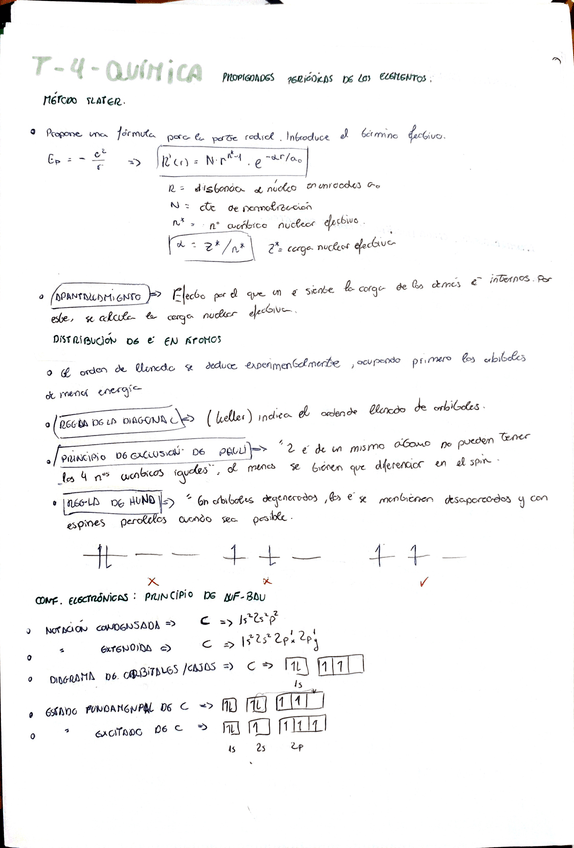 T-4-QUÍMICA PROPIEDADES PERIÓDICAS DE LOS ELEMENTOS.
MÉTODO SLATER.
• Propone una fórmula para la parte radial. Introduce el término efectivo.
Ep = - e²/r => R(r) = N · r^(n*-1) · e^(-αr/a₀)
R = distancia al núcleo en unidades a₀
N = cte de normalización
n* = nº cuántico nuclear efectivo.
α = Z*/n* Z* = carga nuclear efectiva
• APANTALLAMIENTO => Efecto por el que un e⁻ siente la carga de los demás e⁻ internos. Por
este, se calcula la carga nuclear efectiva.
DISTRIBUCIÓN DE e⁻ EN ÁTOMOS
• El orden de llenado se deduce experimentalmente, ocupando primero los orbitales
de menor energía
• REGLA DE LA DIAGONAL => (Moller) indica el orden de llenado de orbitales.
• PRINCIPIO DE EXCLUSIÓN DE PAULI => "2 e⁻ de un mismo átomo no pueden tener
los 4 nos cuánticos iguales", al menos se tienen que diferenciar en el spin.
• REGLA DE HUND => "En orbitales degenerados, los e⁻ se mantienen desapareados y con
espines paralelos cuando sea posible.
x x ✓
CONF. ELECTRÓNICAS: PRINCIPIO DE AUF-BAU
• NOTACIÓN CONDENSADA => C => 1s²2s²p²
• " EXTENDIDA => C => 1s²2s²2px¹2py¹
• DIAGRAMA DE ORBITALES/CAJAS => C => 1L 1 1
1s
• ESTADO FUNDAMENTAL DE C => 1L 1L 1 1
• " EXCITADO DE C => 1L 1 1 1 1
1s 2s 2p